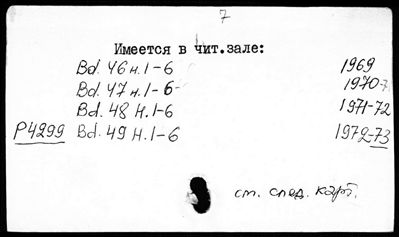 7
Имеется в чит.зале:
Bd. 46 н.1-6 1969
Bd. 47 н.1-6 1970-71
Bd. 48 н.1-6 1971-72
P4299 Bd. 49 н.1-6 1972-73
см. след. карт.